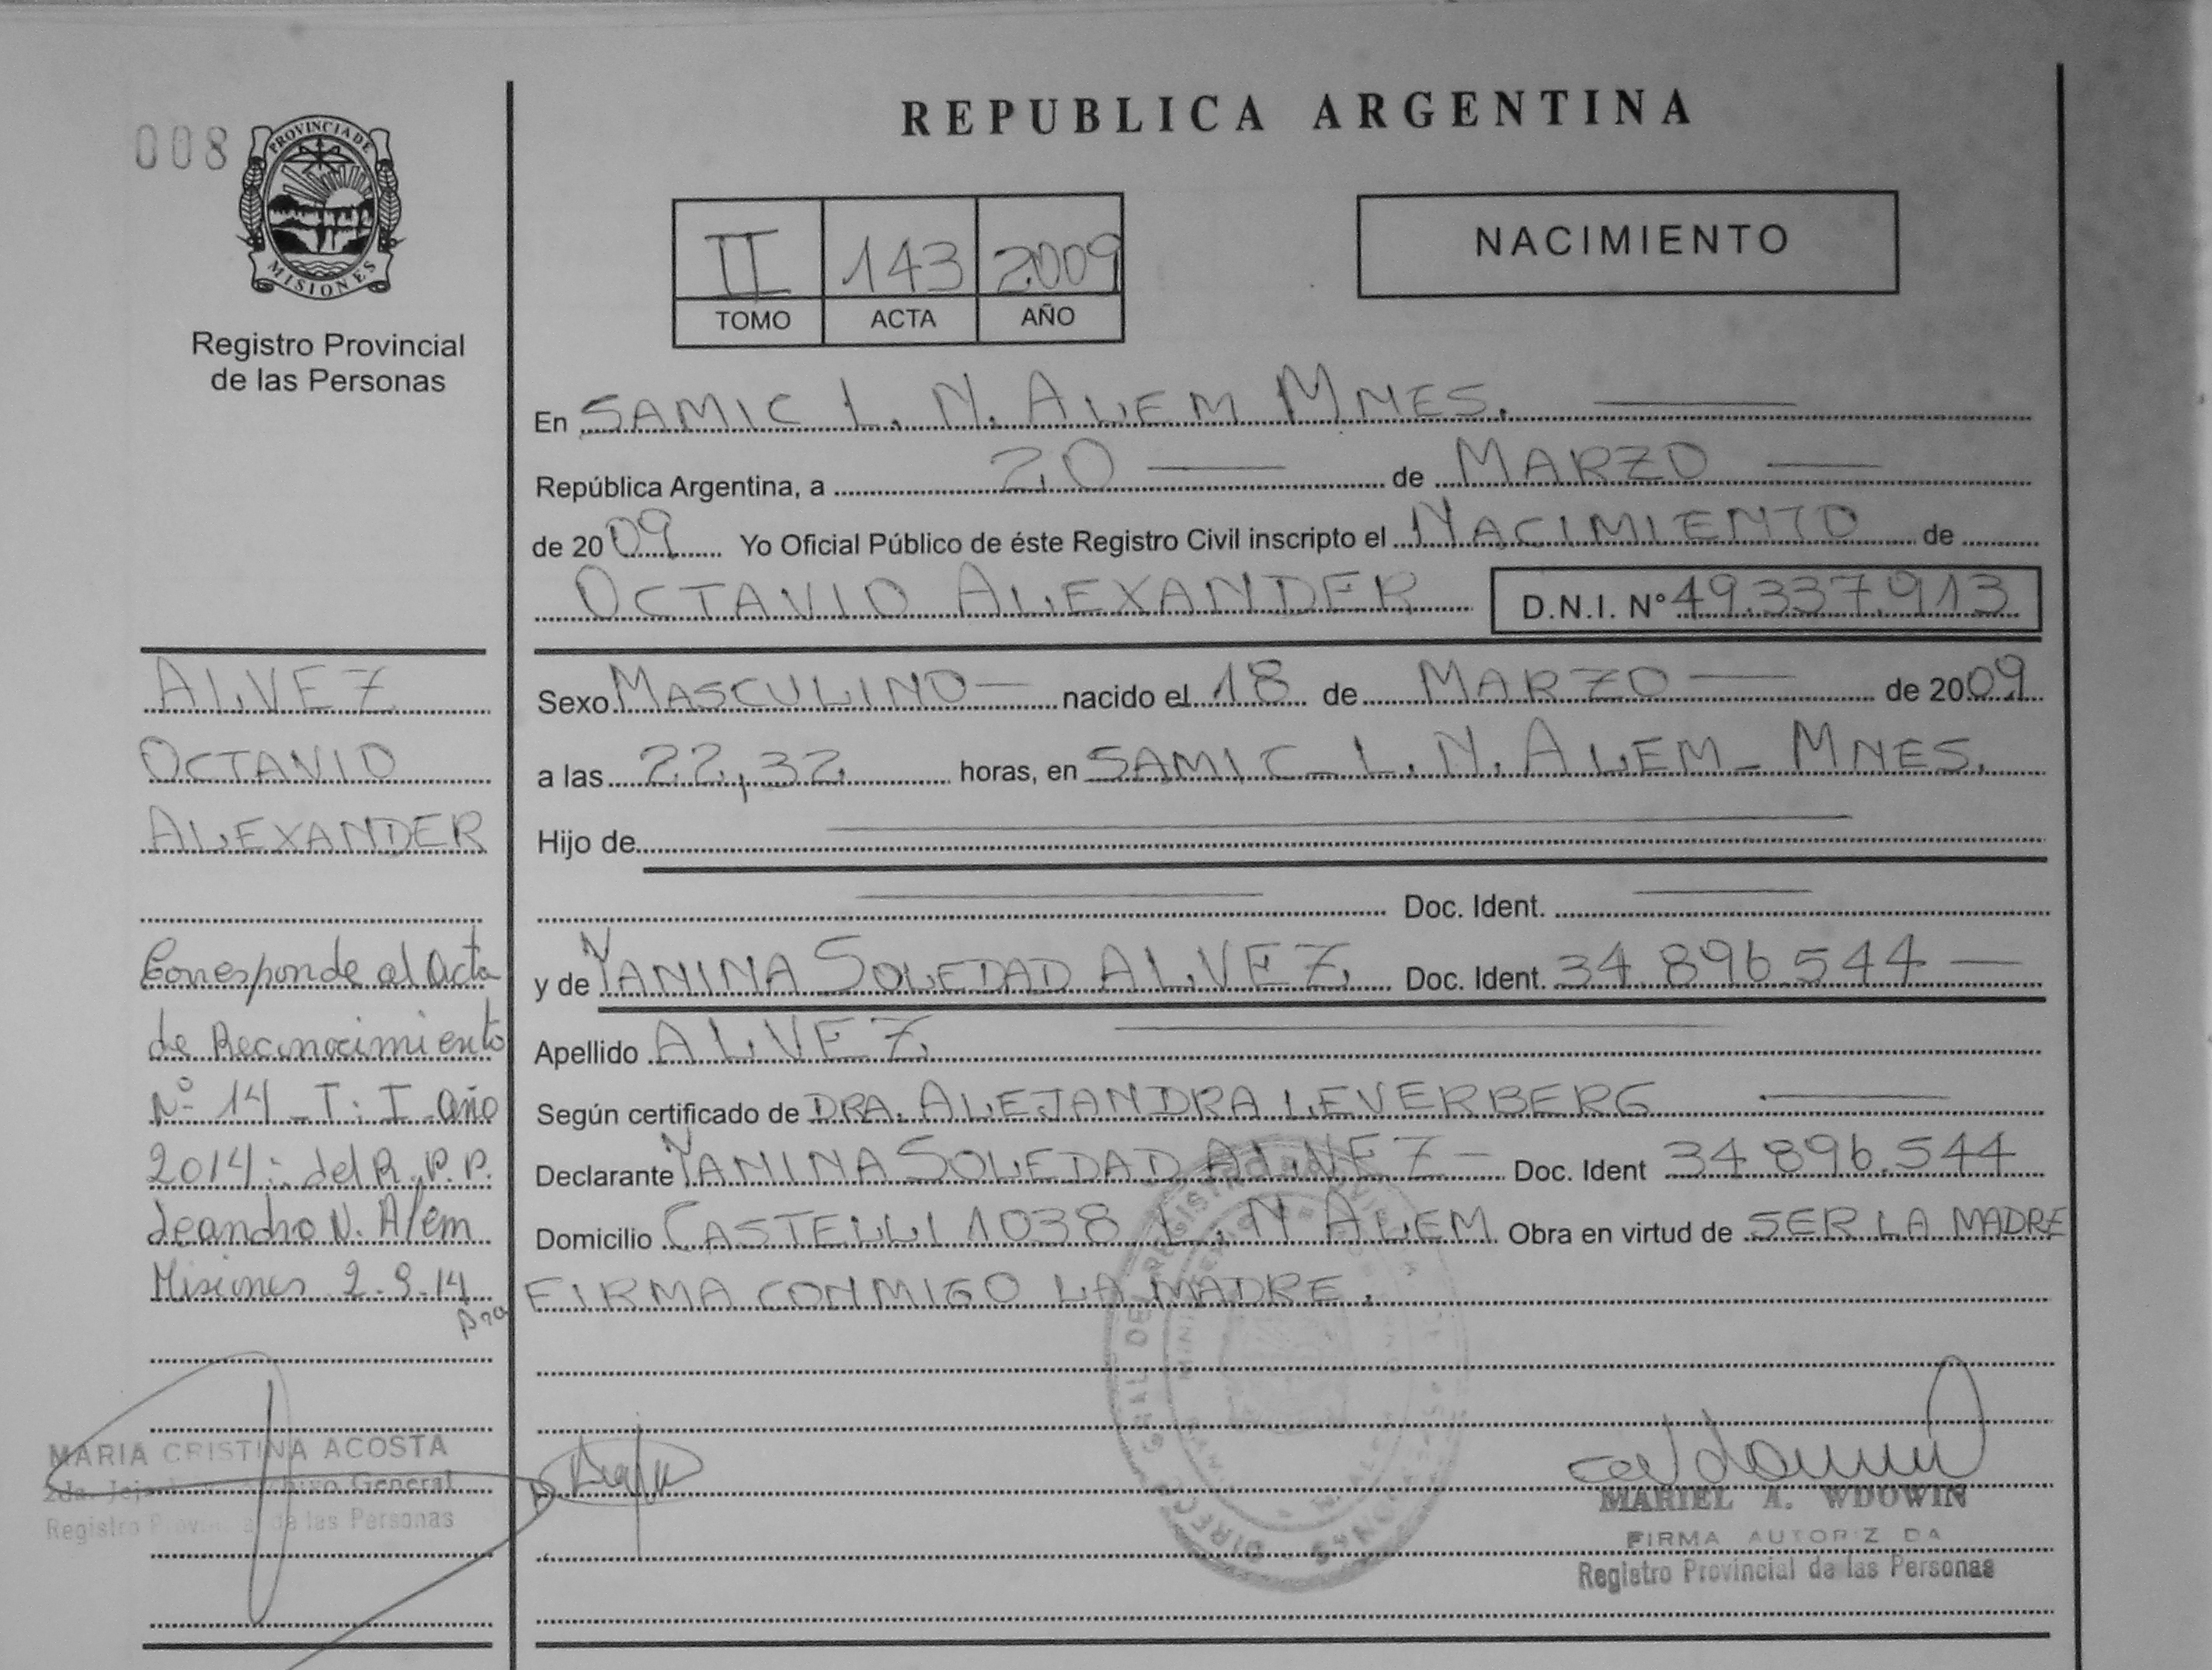 008
PROVINCIA DE
MISIONES
Registro Provincial
de las Personas
REPUBLICA ARGENTINA
II 143 2009
TOMO ACTA AÑO
NACIMIENTO
En SAMIC L. N. ALEM MNES.
República Argentina, a 20 de MARZO
de 2009 Yo Oficial Público de éste Registro Civil inscripto el NACIMIENTO de
OCTAVIO ALEXANDER D.N.I. N° 49.337.913
Sexo MASCULINO nacido el 18 de MARZO de 2009
a las 22,32 horas, en SAMIC - L. N. ALEM - MNES.
Hijo de
Doc. Ident.
y de YANINA SOLEDAD ALVEZ Doc. Ident. 34.896.544
Apellido ALVEZ
Según certificado de DRA. ALEJANDRA LEVERBERG
Declarante YANINA SOLEDAD ALVEZ - Doc. Ident 34.896.544
Domicilio CASTELLI 1038 L. N ALEM Obra en virtud de SER LA MADRE
FIRMA CONMIGO LA MADRE.
ALVEZ
OCTAVIO
ALEXANDER
Corresponde al Acta
de Reconocimiento
Nº 14 - T: I año
2014: del R. P. P.
Leandro N. Alem
Misiones 2.9.14
MARIA CRISTINA ACOSTA
Archivo General
Registro Provincial de las Personas
MARIEL A. WDOWIN
FIRMA AUTORIZADA
Registro Provincial de las Personas